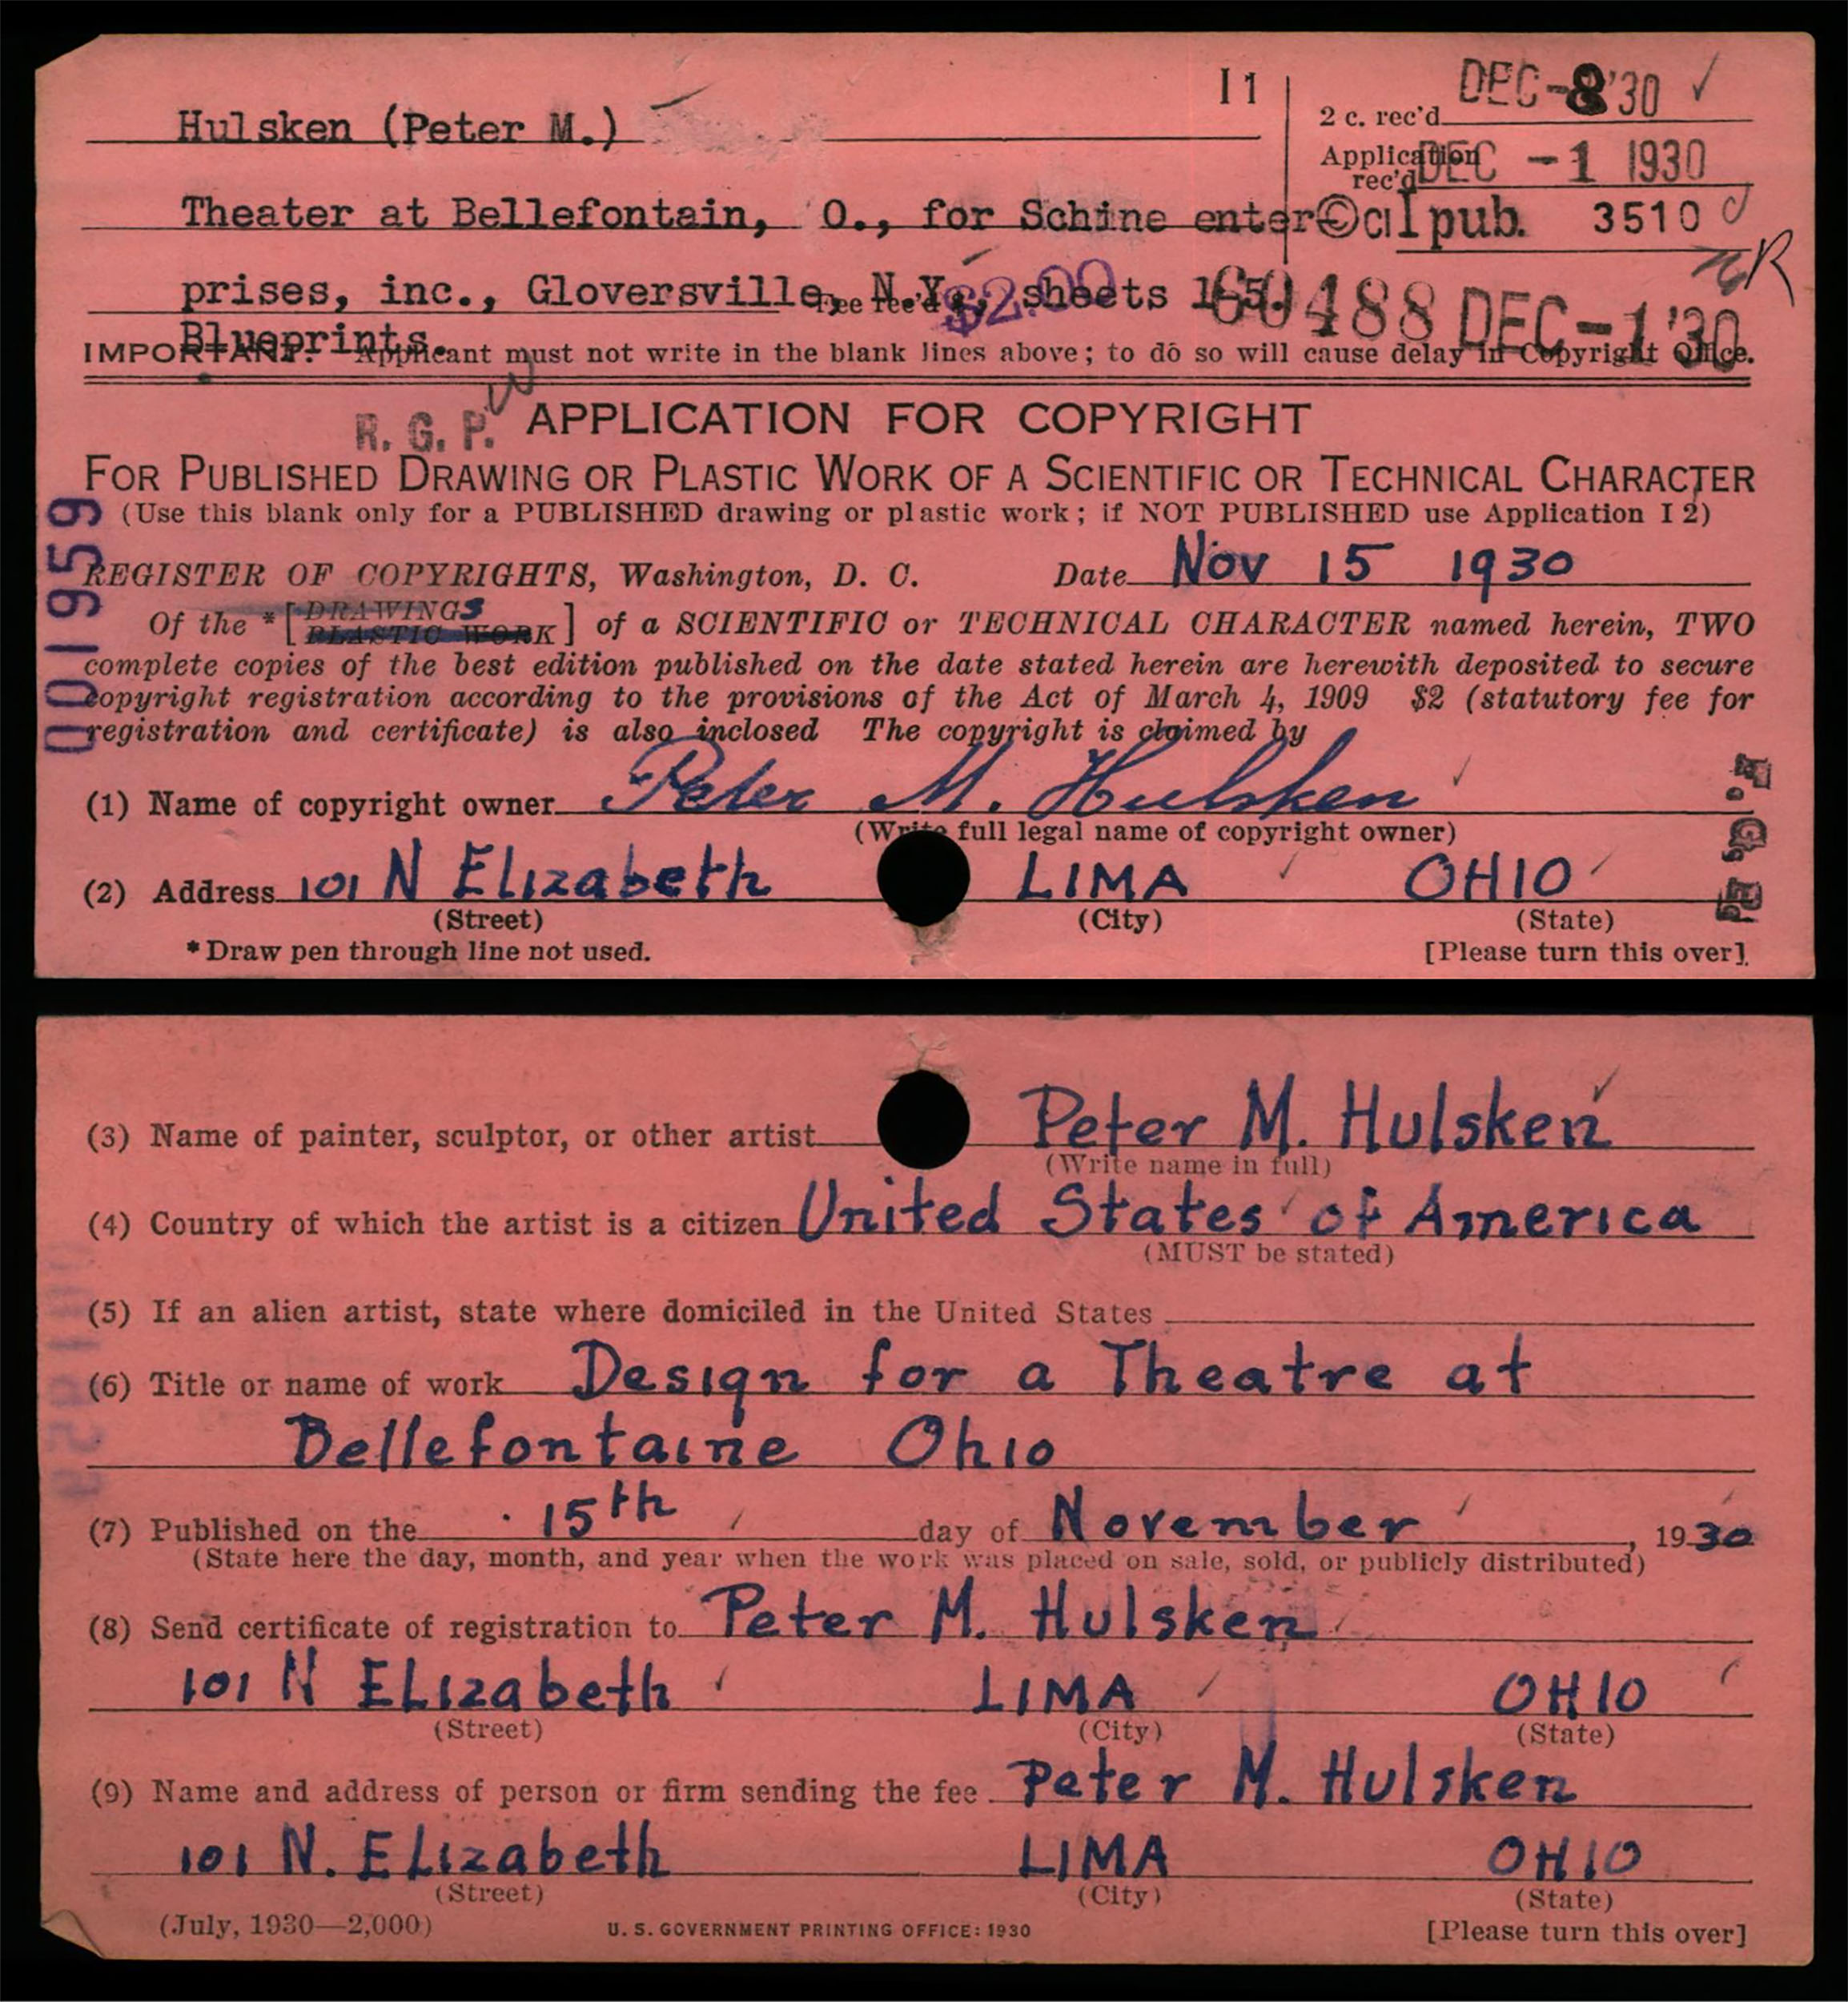 I1
DEC-8'30
2 c. rec'd
Hulsken (Peter M.)
Application rec'd DEC -1 1930
Theater at Bellefontain, O., for Schine enter
©Cl I pub. 3510
R
prises, inc., Gloversville, N.Y., sheets 1-5.
Fee rec'd $2.00
60488 DEC-1'30
Blueprints.
IMPORTANT.—Applicant must not write in the blank lines above; to do so will cause delay in Copyright Office.
R. G. P.
APPLICATION FOR COPYRIGHT
FOR PUBLISHED DRAWING OR PLASTIC WORK OF A SCIENTIFIC OR TECHNICAL CHARACTER
(Use this blank only for a PUBLISHED drawing or plastic work; if NOT PUBLISHED use Application I 2)
001959
REGISTER OF COPYRIGHTS, Washington, D. C. Date Nov 15 1930
Of the *[DRAWINGS PLASTIC WORK] of a SCIENTIFIC or TECHNICAL CHARACTER named herein, TWO
complete copies of the best edition published on the date stated herein are herewith deposited to secure
copyright registration according to the provisions of the Act of March 4, 1909 $2 (statutory fee for
registration and certificate) is also inclosed The copyright is claimed by
(1) Name of copyright owner Peter M. Hulsken
(Write full legal name of copyright owner)
(2) Address 101 N Elizabeth LIMA OHIO
(Street) (City) (State)
*Draw pen through line not used. [Please turn this over]
(3) Name of painter, sculptor, or other artist Peter M. Hulsken
(Write name in full)
(4) Country of which the artist is a citizen United States of America
(MUST be stated)
(5) If an alien artist, state where domiciled in the United States
(6) Title or name of work Design for a Theatre at
Bellefontaine Ohio
(7) Published on the 15th day of November, 1930
(State here the day, month, and year when the work was placed on sale, sold, or publicly distributed)
(8) Send certificate of registration to Peter M. Hulsken
101 N ELizabeth LIMA OHIO
(Street) (City) (State)
(9) Name and address of person or firm sending the fee Peter M. Hulsken
101 N. ELizabeth LIMA OHIO
(Street) (City) (State)
(July, 1930—2,000) U. S. GOVERNMENT PRINTING OFFICE: 1930 [Please turn this over]